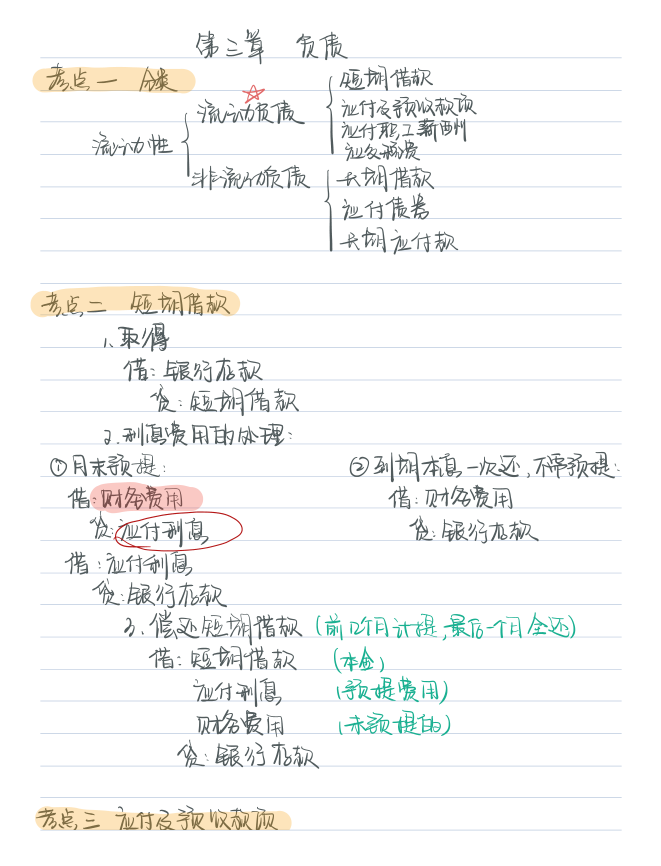 第三章 负债
考点一 分类
短期借款
流动负债
应付及预收款项
应付职工薪酬
应交税费
流动性
非流动负债
长期借款
应付债券
长期应付款
考点二 短期借款
1、取得
借：银行存款
贷：短期借款
2、利息费用的处理：
①月末预提：
②到期本息一次还，不需预提：
借：财务费用
借：财务费用
贷：应付利息
贷：银行存款
借：应付利息
贷：银行存款
3、偿还短期借款（前几个月计提，最后一个月全还）
借：短期借款 （本金）
应付利息 （预提费用）
财务费用 （未预提的）
贷：银行存款
考点三 应付及预收款项